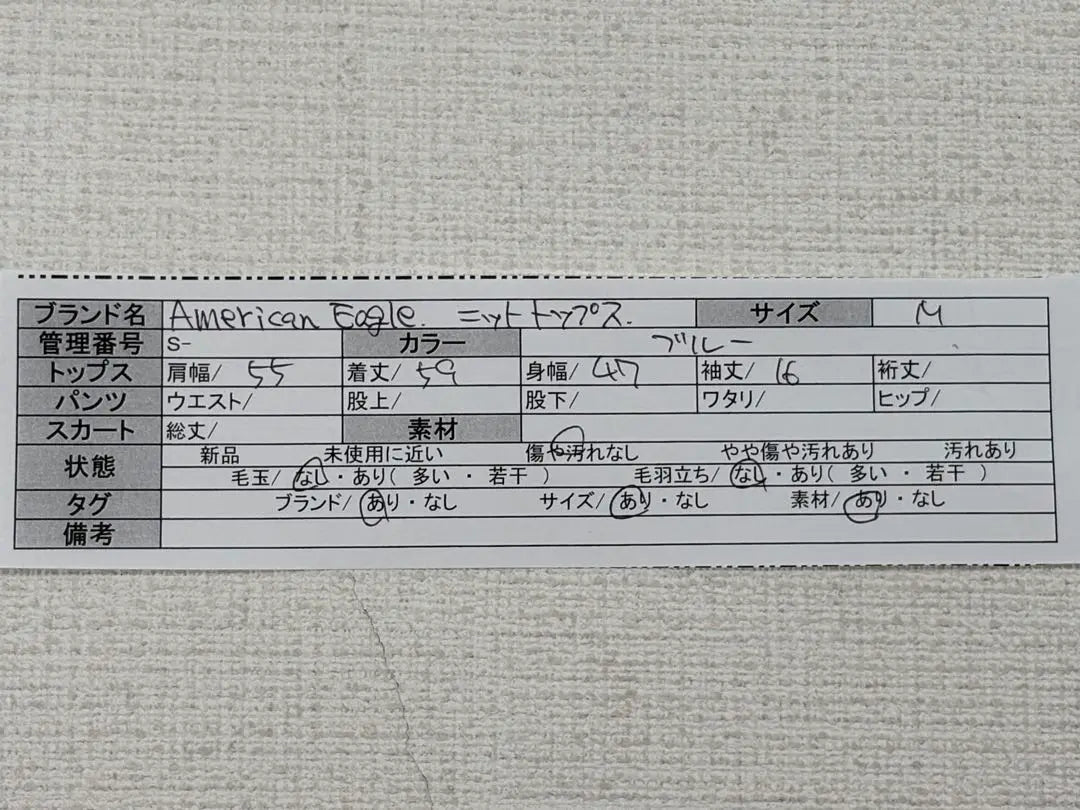 ブランド名 American Eagle. ニットトップス. サイズ M
管理番号 S- カラー ブルー
トップス 肩幅/ 55 着丈/ 59 身幅/ 47 袖丈/ 16 裄丈/
パンツ ウエスト/ 股上/ 股下/ ワタリ/ ヒップ/
スカート 総丈/ 素材
状態 新品 未使用に近い 傷や汚れなし やや傷や汚れあり 汚れあり
毛玉/ なし・あり( 多い ・ 若干 ) 毛羽立ち/ なし・あり( 多い ・ 若干 )
タグ ブランド/ あり・なし サイズ/ あり・なし 素材/ あり・なし
備考